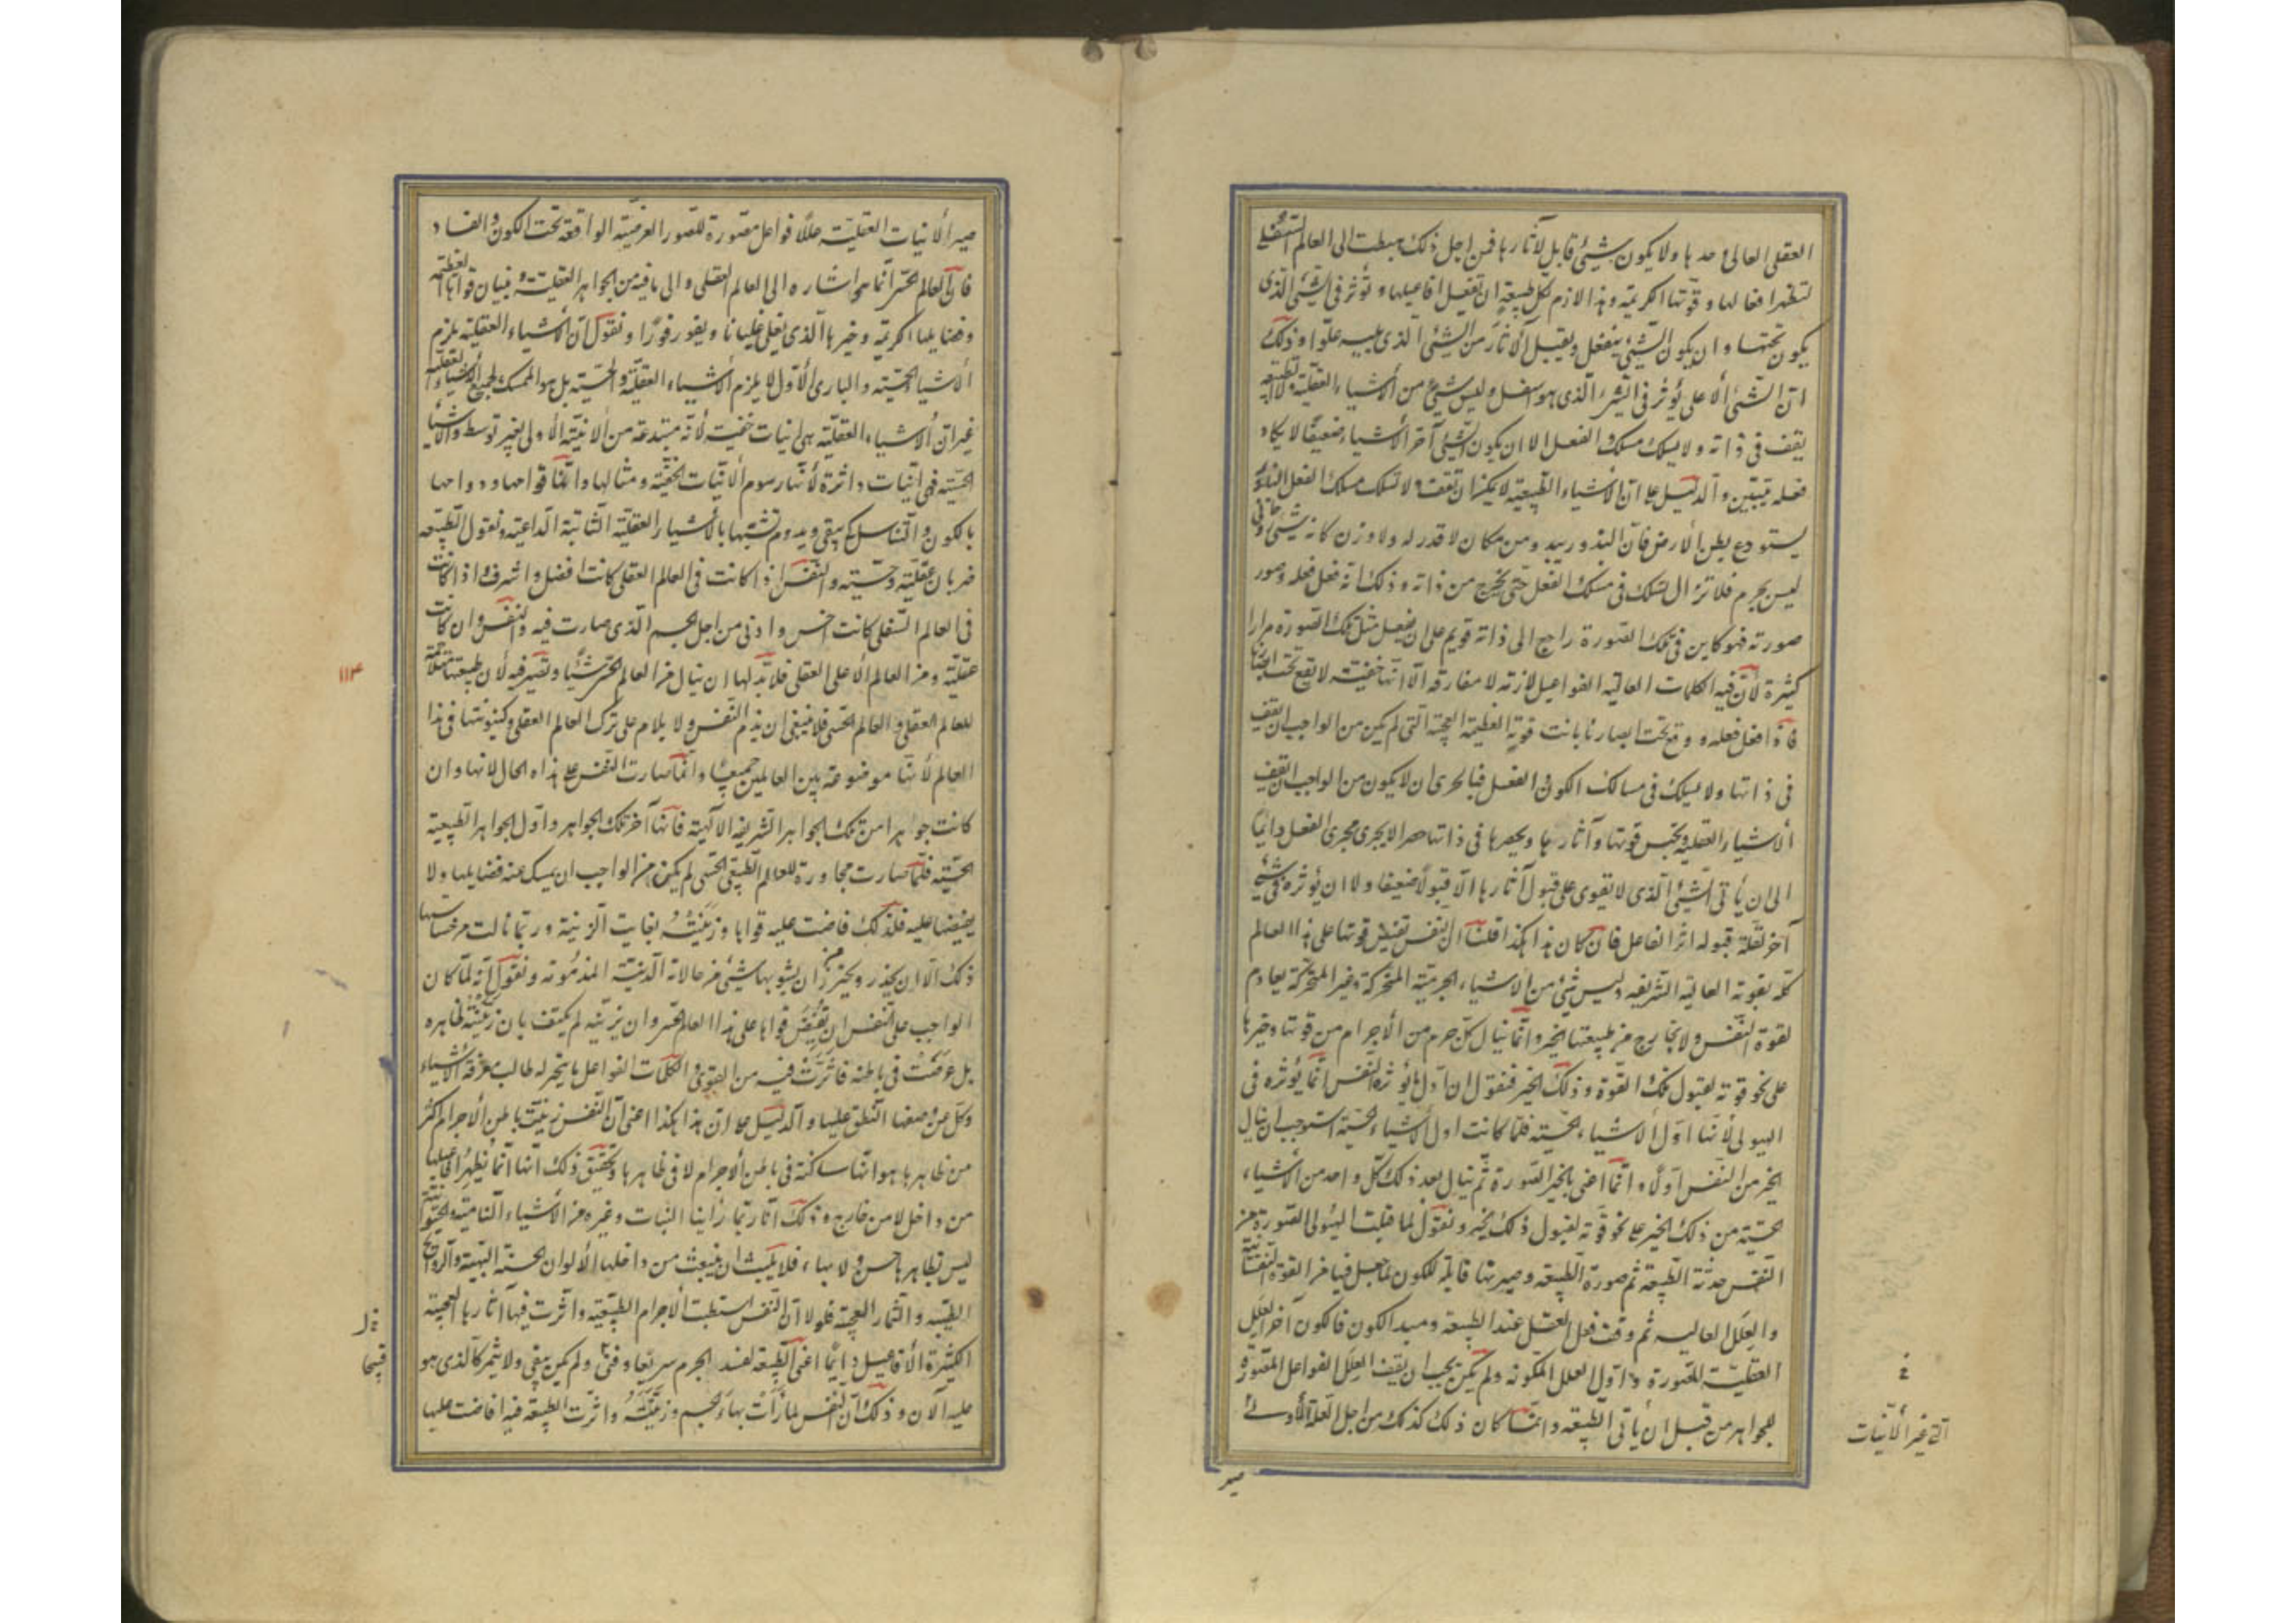 العقلى العالى وحدها ولا يكون شيئ قابل لآثارها فمن اجل ذلك هبطت الى العالم السفلى
لتظهر افعالها وقوتها الكريمة وهذا لازم لكل طبيعة ان تفعل افاعيلها وتؤثر فى الشئ الذى
يكون تحتها وان يكون الشئ ينفعل ويقبل الآثار من الشئ الذى يليه علوا وذلك
ان الشئ الأعلى يؤثر فى الشئ الذى هو اسفل وليس شئ من الأشياء العقلية ولا الطبيعية
يقف فى ذاته ولا يسلك مسلك الفعل الا ان يكون الشئ آخر الأشياء ضعيفا لا يكاد
فعله يتبين والدليل على ان الأشياء الطبيعية لا يمكن ان تقف ولا تسلك مسلك الفعل البذر
يستودع بطن الأرض فان البذر يبدو من مكان لا قدر له ولا وزن كانه شئ روحانى
ليس بجرم فلا تزال تسلك فى مسلك الفعل حتى يخرج من ذاته وذلك انه فعل فعله وصور
صورته فهو كاين فى تلك الصورة راجع الى ذاته قويم على ان يفعل مثل تلك الصورة مرارا
كثيرة لأن فيه الكلمات العالية الفواعل لازمة لا مفارقة الا انها خفية لا تقع تحت ابصارنا
فاذا فعل فعله ووقع تحت ابصارنا بانت قوته العظيمة العجيبة التى لم يكن من الواجب ان تقف
فى ذاتها ولا يسلك فى مسالك الكون والفعل فبالحرى ان لا يكون من الواجب ان تقف
الأشياء العقلية وتحبس قوتها وآثارها ويحصرها فى ذاتها حصرا لا يجرى مجرى الفعل دائما
الى ان يأتى الشئ الذى لا يقوى على قبول آثارها الا قبولا ضعيفا ولا ان يؤثر فى شئ
آخر لقلة قبوله اثر الفاعل فان كان هذا هكذا قلنا ان النفس تفيض قوتها على هذا العالم
كله بقوته العالية الشريفة وليس شئ من الأشياء الجرمية المتحركة وغير المتحركة بعادم
لقوة النفس ولا بخارج من طبيعتها الخير وانما ينال كل جرم من الأجرام من قوتها وخيرها
على نحو قوته لقبول تلك القوة وذلك الخير فنقول ان اول ما يؤثره النفس انما يؤثره فى
الهيولى لأنها اول الأشياء الحسية فلما كانت اول الأشياء الحسية استوجب ان ينال
الخير من النفس اولا وانما اعنى بالخير الصورة ثم ينال بعد ذلك كل واحد من الأشياء
الحسية من ذلك الخير على نحو قوته لقبول ذلك الخير ونقول لما قبلت الهيولى الصورة من
النفس حدثت الطبيعة ثم صورة الطبيعة وصيرتها قابلة للكون لما جعل فيها من القوة النفسانية
والعلل العالية ثم وقف فعل العقل عند الطبيعة ومبدا الكون فالكون آخر العلل
العقلية المصورة واول العلل المكونة ولم يكن يجب ان يقف العلل الفواعل المصورة
للجواهر من قبل ان يأتى الطبيعة وانما كان ذلك كذلك من اجل العلة الأولى
التى غير الأنيات
صير
صير الأنيات العقلية عللا فواعل مصورة للصور العرضية الواقعة تحت الكون والفساد
فان العالم الحسى انما هو اشارة الى العالم العقلى والى ما فيه من الجواهر العقلية وبيان قواها العظيمة
وفضايلها الكريمة وخيرها الذى يغلى غليانا ويفور فورا ونقول ان الأشياء العقلية يلزم
الأشيا الحسية والبارى الأول لا يلزم الأشياء العقلية والحسية بل هو الممسك لجميع الأشياء
غير ان الأشياء العقلية هى انيات خفية لأنه مبتدعة من الانية الأولى بغير توسط والأشيا
الحسية فهى انيات داثرة لأنها رسوم الأنيات الخفية ومثالها وانما قوامها ودوامها
بالكون والتناسل كى يبقى ويدوم تشبها بالأشياء العقلية الثابتة الداعية ونقول الطبيعه
ضربان عقلية وحسية والنفس اذا كانت فى العالم العقلى كانت افضل واشرف اذا كانت
فى العالم السفلى كانت اخس وادنى من اجل الجسم الذى صارت فيه والنفس وان كانت
عقلية ومن العالم الأعلى العقلى فلابد لها ان ينال من العالم الحسى شيئا وتصير فيه لأن طبيعتها متلائمة
للعالم العقلى والعالم الحسى فلا ينبغى ان يذم النفس ولا يلام على ترك العالم العقلى وكينونتها فى هذا
العالم لأنها موضوعة بين العالمين جميعا وانما صارت النفس على هذه الحال لانها وان
كانت جوهرا من تلك الجواهر الشريفة الالهية فانها آخر تلك الجواهر واول الجواهر الطبيعية
الحسية فلما صارت مجاورة للعالم الطبيعى الحسى لم يكن من الواجب ان يمسك عنه فضايلها ولا
يفيضها عليه فلذلك فاضت عليه قواها وزينته بغايت الزينة وربما نالت من خساستها
ذلك الا ان يحذر ويحترز من ان يشوبها شئ من حالاته الدنية المذمومة ونقول انه لما كان
الواجب على النفس ان تفيض قواها على هذا العالم الحسى وان يزينه لم يكتف بان زينت ظاهره
بل غرضت فى باطنه فاثرت فيه من القوى والكلمات الفواعل ما يتحير له طالب معرفة الأشياء
وكل عن وصفها النطق عليها والدليل على ان هذا هكذا اعنى ان النفس زينت باطن الأجرام اكثر
من ظاهرها هو انها ساكنة فى باطن الأجرام لا فى ظاهرها وتحقيق ذلك انها انما يظهر افاعيلها
من داخل لا من خارج وذلك انا ربما رأينا النبات وغيره من الأشياء النامية والحيوانية
ليس بظاهرها حسن ولا بهاء فلا يلبث ان ينبعث من داخلها الألوان الحسنة البهية والروائح
الطيبة والثمار العجيبة فلولا ان النفس استبطنت الأجرام الطبيعية واثرت فيها آثارها العجيبة
الكثيرة الأفاعيل دائما اعنى الطبيعة لفسد الجرم سريعا وفنى ولم يكن يبقى ولا يثمر كالذى هو
عليه الآن وذلك ان النفس لما رأت بهاء الجسم وزينته واثرت الطبيعة فيه افاضت عليها
١١٣